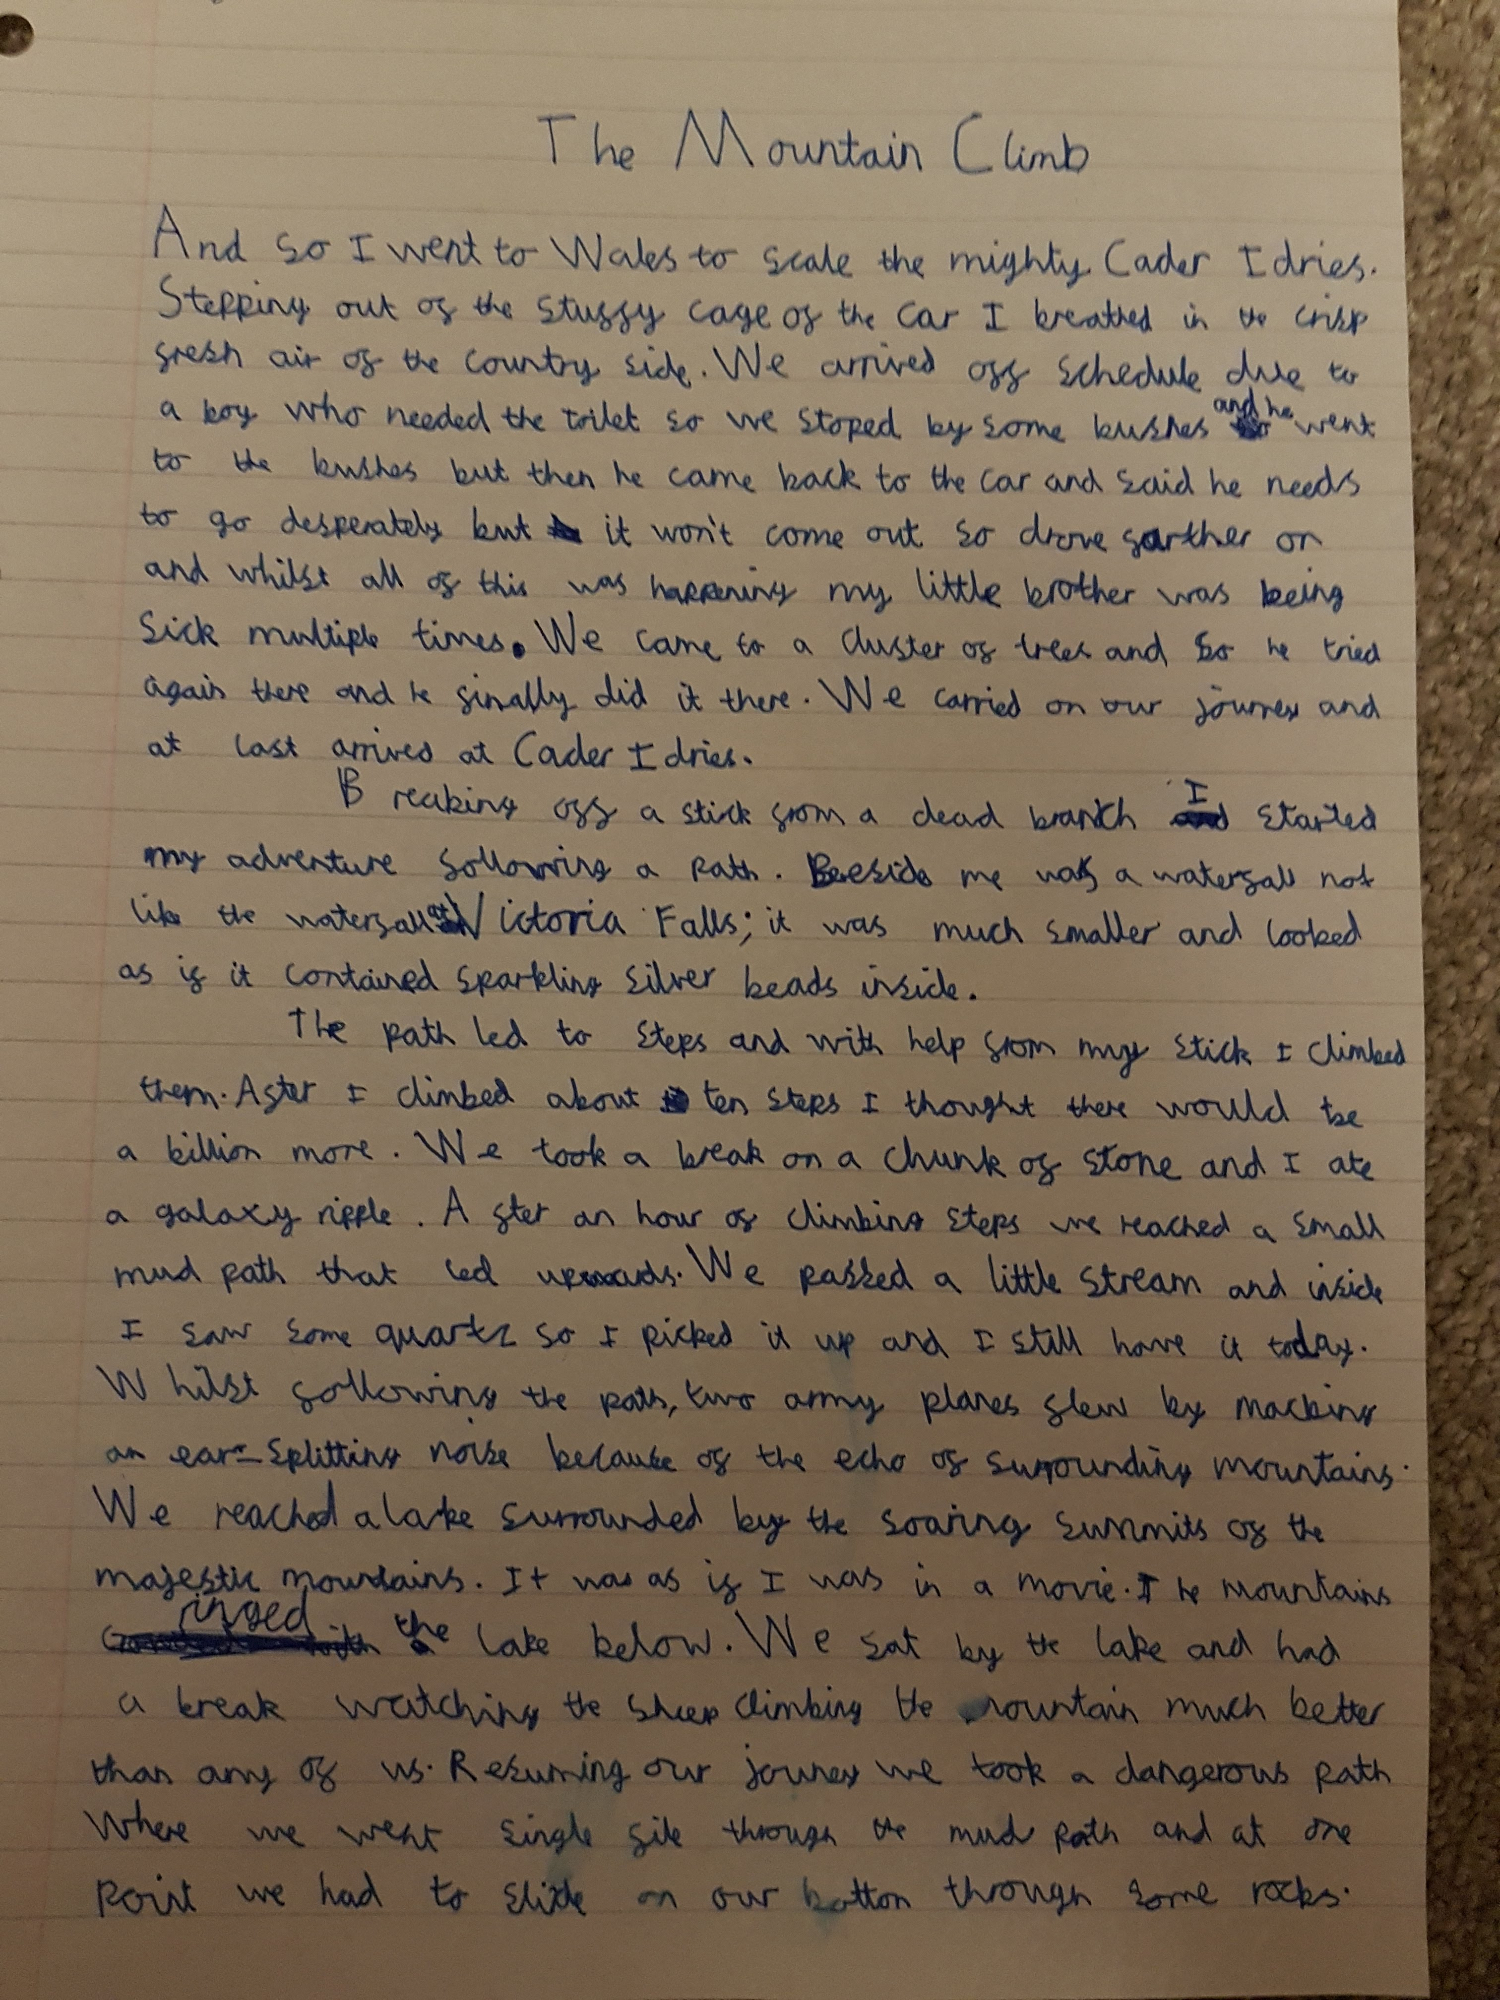 The Mountain Climb
And so I went to Wales to scale the mighty Cader Idries.
Stepping out of the stuffy cage of the car I breathed in the crisp
fresh air of the country side. We arrived off schedule due to
a boy who needed the toilet so we stoped by some bushes and he went
to the bushes but then he came back to the car and said he needs
to go desperately but it won't come out so drove farther on
and whilst all of this was happening my little brother was being
sick multiple times. We came to a cluster of trees and so he tried
again there and he finally did it there. We carried on our journey and
at last arrived at Cader Idries.
Breaking off a stick from a dead branch I started
my adventure following a path. Beside me was a waterfall not
like the waterfall Victoria Falls; it was much smaller and looked
as if it contained sparkling silver beads inside.
The path led to steps and with help from my stick I climbed
them. After I climbed about ten steps I thought there would be
a billion more. We took a break on a chunk of stone and I ate
a galaxy ripple. After an hour of climbing steps we reached a small
mud path that led upwards. We passed a little stream and inside
I saw some quartz so I picked it up and I still have it today.
Whilst following the path, two army planes flew by macking
an ear-splitting noise because of the echo of surrounding mountains.
We reached a lake surrounded by the soaring summits of the
majestic mountains. It was as if I was in a movie. The mountains
ringed the lake below. We sat by the lake and had
a break watching the sheep climbing the mountain much better
than any of us. Resuming our jouney we took a dangerous path
where we went single file through the mud path and at one
point we had to slide on our bottom through some rocks.